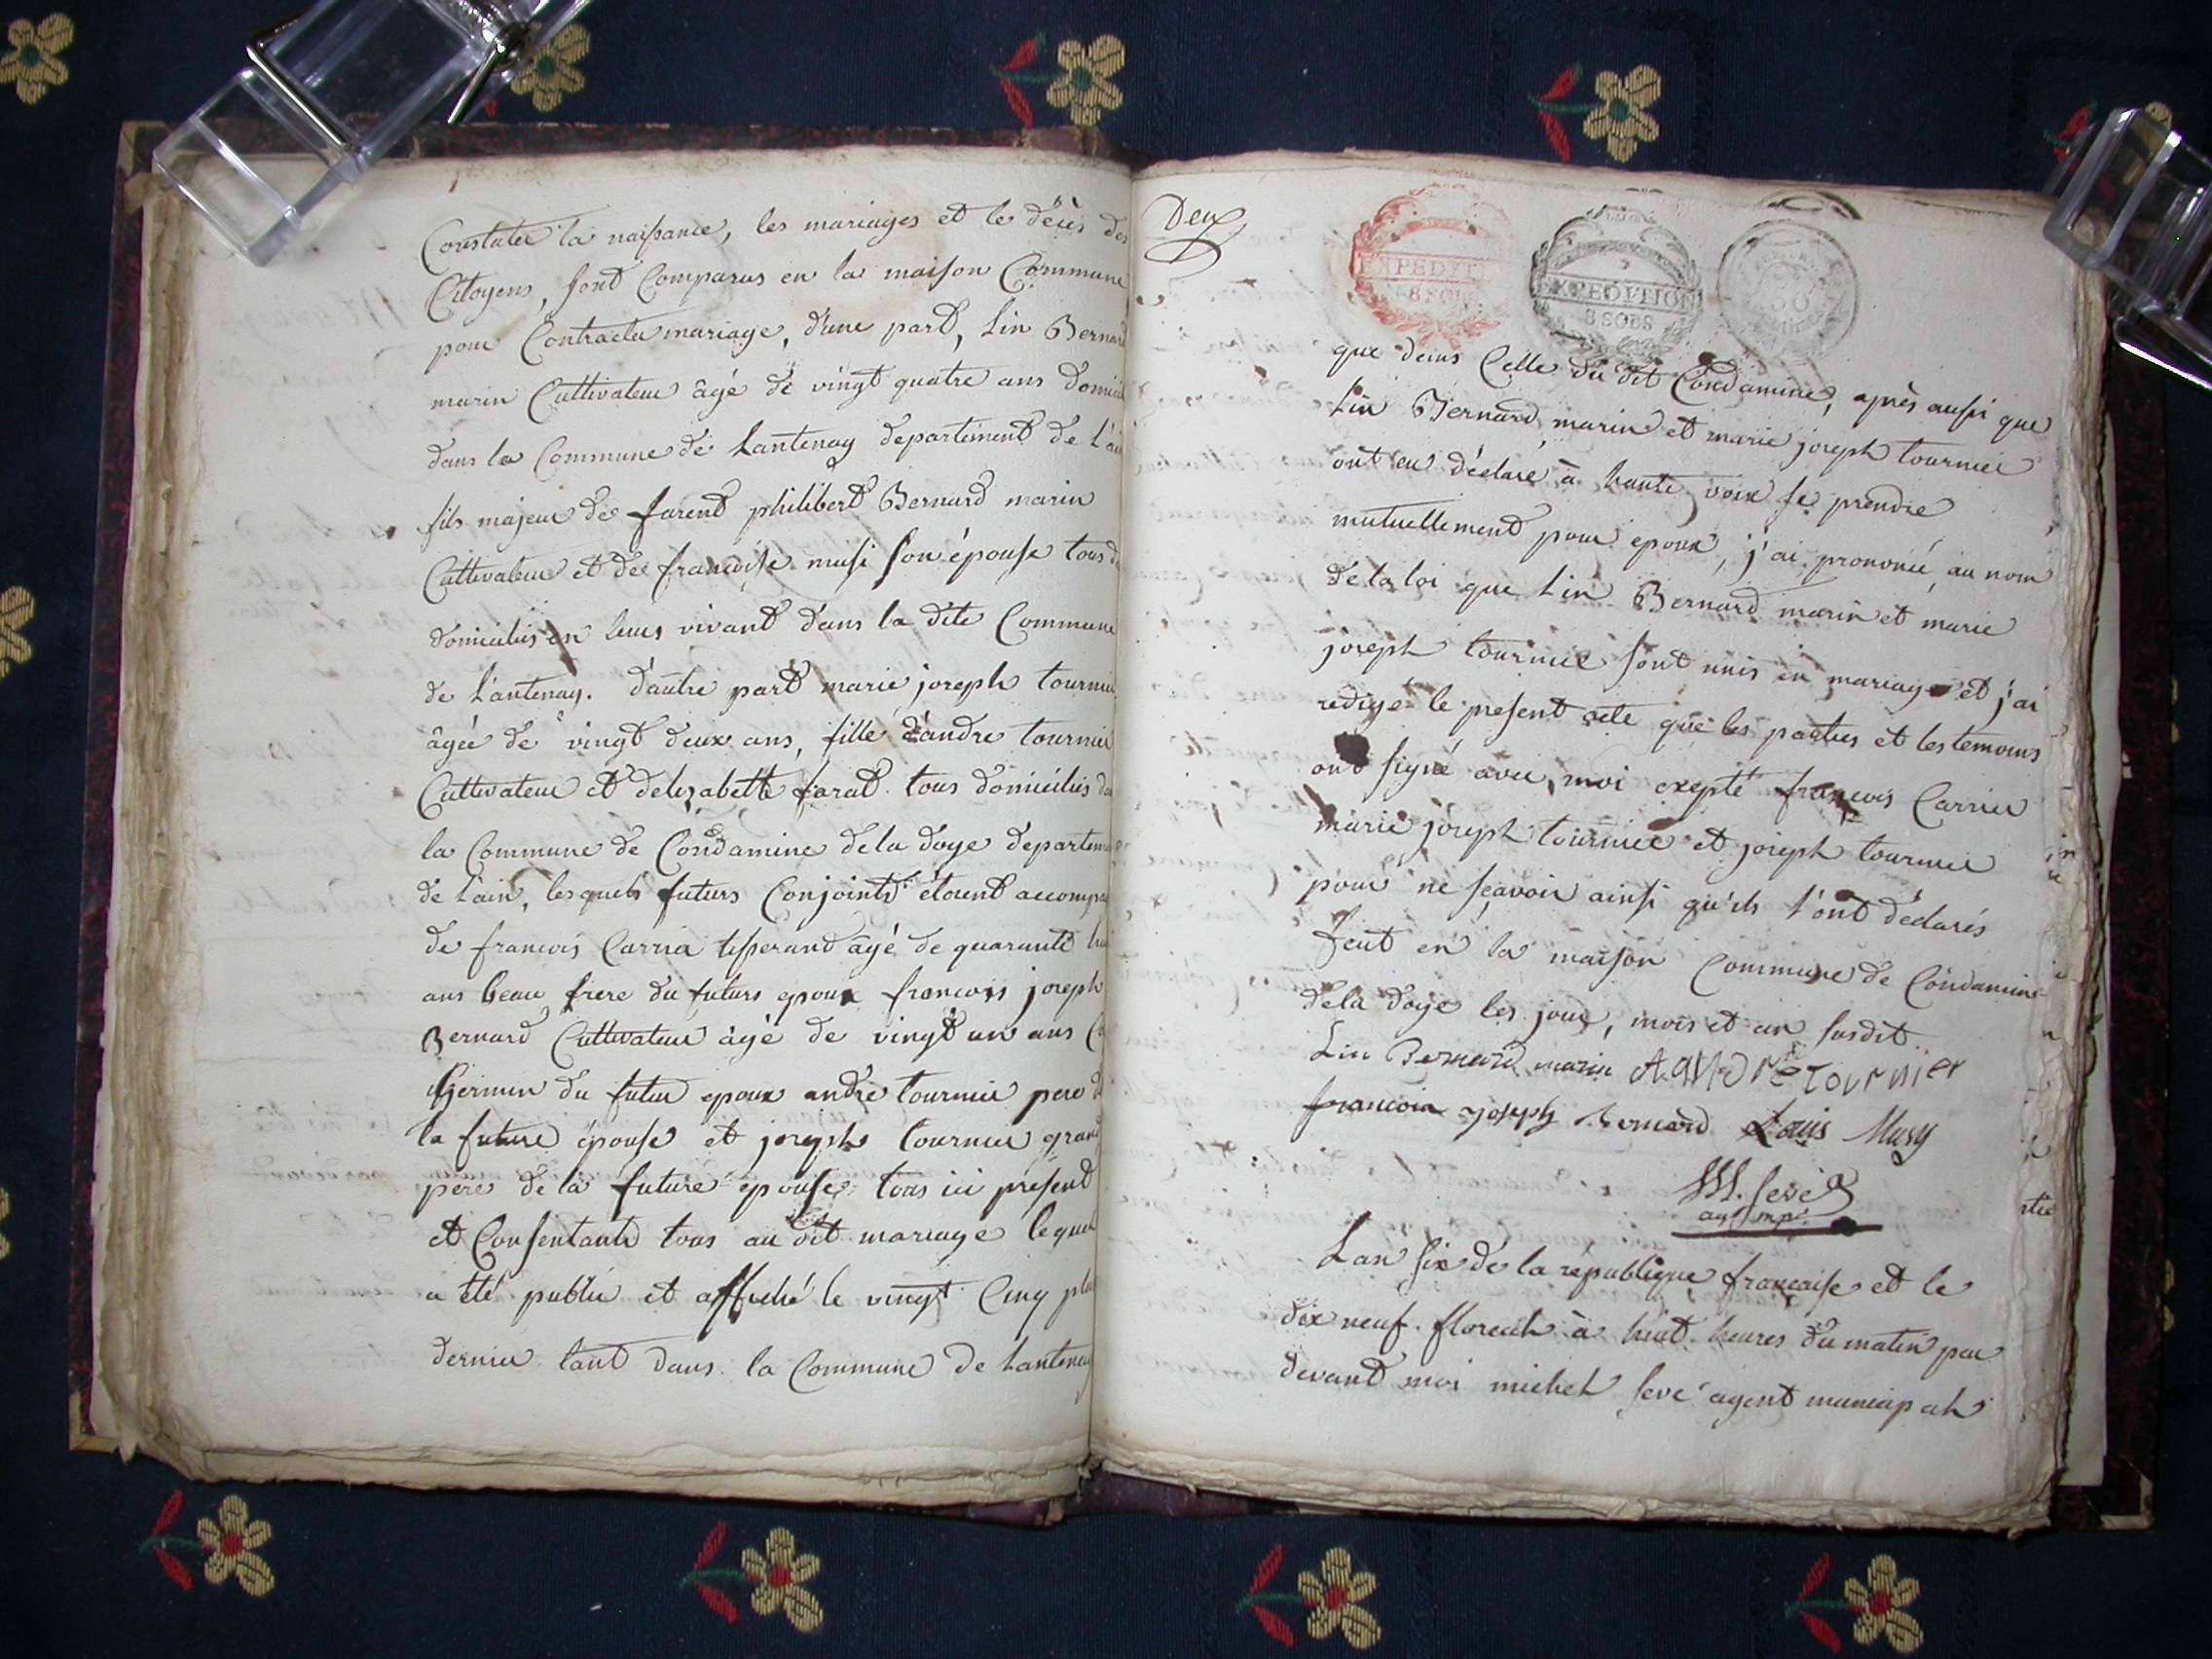 Constater la naissance, les mariages et le décès des
Citoyens, sont Comparus en la maison Commune
pour Contracter mariage, d'une part, Lin Bernard
marin Cultivateur âgé de vingt quatre ans domici
dans la Commune de Lantenay departement de l'ain
fils majeur de farent philibert Bernard marin
Cultivateur et de francoise musi son épouse tous d
domiciliés en leurs vivant dans la dite Commune
de Lantenay. d'autre part marie joseph tournier
âgée de vingt deux ans, fille d'andre tournier
Cultivateur et delizabette farat tous domiciliés da
la Commune de Condamine dela doye departeme
de Lain, lesquels futurs Conjoints étoient accompa
de francois Carria tisserand âgé de quarante hui
ans beau frere du futurs epoux francois joseph
Bernard Cultivateur âgé de vingt un ans Co
Germin du futur epoux andre tournier pere d
la future épouse et joseph tournier grand
pere de la future epouse tous ici présent
et Consentants tous au dit mariage lequel
a été publié et affiché le vingt Cinq plu
dernier tant dans la Commune de Lantenay
Deux
EXPEDITI
8 SOL
EXPEDITION
8 SOUS
50
que dans Celle du dit Condamine, après aussi que
Lin Bernard marin et marie joseph tournier
ont eu déclaré à haute voix se prendre
mutuellement pour epoux, j'ai prononcé au nom
de la loi que Lin Bernard marin et marie
joseph tournier sont unis en mariage et j'ai
redigé le present acte que les parties et les temoins
ont signé avec moi exepté francois Carrier
marie joseph tournier et joseph tournier
pour ne sçavoir ainsi qu'ils l'ont déclarés
feut en la maison Commune de Condamine
dela doye les jour, mois et an susdit.
Lin Bernard marin Andre Tournier
francois joseph Bernard Louis Musy
M. Sevé
agt mpl
Lan six de la république française et le
dix neuf floreal à huit heures du matin par
devant moi michel Sevé agent municipal